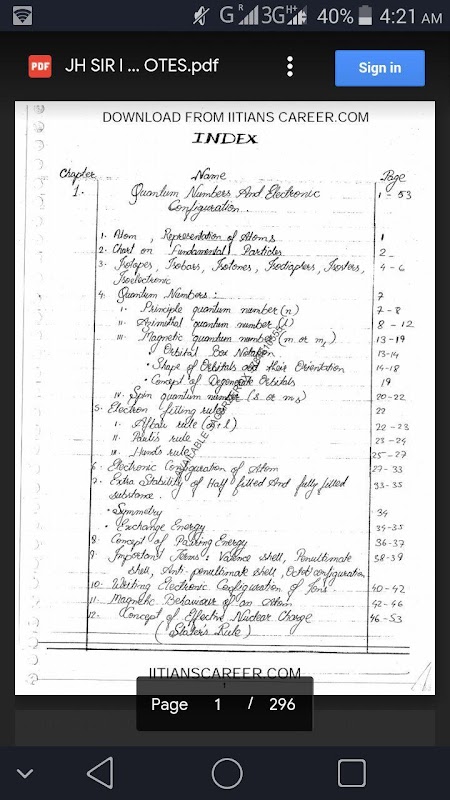 G 3G H+ 40% 4:21 AM
PDF JH SIR I ... OTES.pdf Sign in
DOWNLOAD FROM IITIANS CAREER.COM
INDEX
Chapter Name Page
1. Quantum Numbers And Electronic 1 - 53
Configuration.
1. Atom, Representation of Atoms 1
2. Chart on Fundamental Particles 2
3. Isotopes, Isobars, Isotones, Isodiaphers, Isosters, 4 - 6
Isoelectronic
4. Quantum Numbers : 7
i. Principle quantum number (n) 7 - 8
ii. Azimuthal quantum number (l) 8 - 12
iii. Magnetic quantum number (m or ml) 13-19
• Orbital Box Notation 13-14
• Shape of Orbitals and their Orientation 14-18
• Concept of Degenerate Orbitals 19
iv. Spin quantum number (s or ms) 20-22
5. Electron filling rules 22
i. Aufbau rule (n+l) 22-23
ii. Pauli's rule 23-24
iii. Hund's rule 25-27
6. Electronic Configuration of Atom 27-33
7. Extra Stability of Half filled And fully filled 33-35
substance.
• Symmetry 34
• Exchange Energy 34-35
8. Concept of Pairing Energy 36-37
9. Important Terms : Valence shell, Penultimate 38-39
shell, Anti-penultimate shell, Octet configuration
10. Writing Electronic Configuration of Ions 40-42
11. Magnetic Behaviour of an Atom 42-46
12. Concept of Effective Nuclear Charge 46-53
(Slater's Rule)
IITIANSCAREER.COM
Page 1 / 296